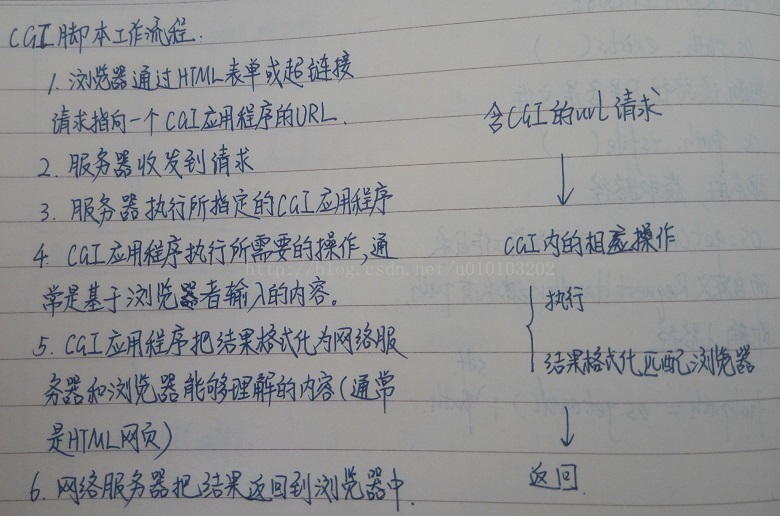 CGI脚本工作流程.
1. 浏览器通过HTML表单或超链接
请求指向一个CGI应用程序的URL.
2. 服务器收发到请求
3. 服务器执行所指定的CGI应用程序
4. CGI应用程序执行所需要的操作,通
常是基于浏览器者输入的内容。
5. CGI应用程序把结果格式化为网络服
务器和浏览器能够理解的内容(通常
是HTML网页)
6. 网络服务器把结果返回到浏览器中.
含CGI的url请求
CGI内的相应操作
执行
结果格式化匹配浏览器
返回
http://blog.csdn.net/u010103202